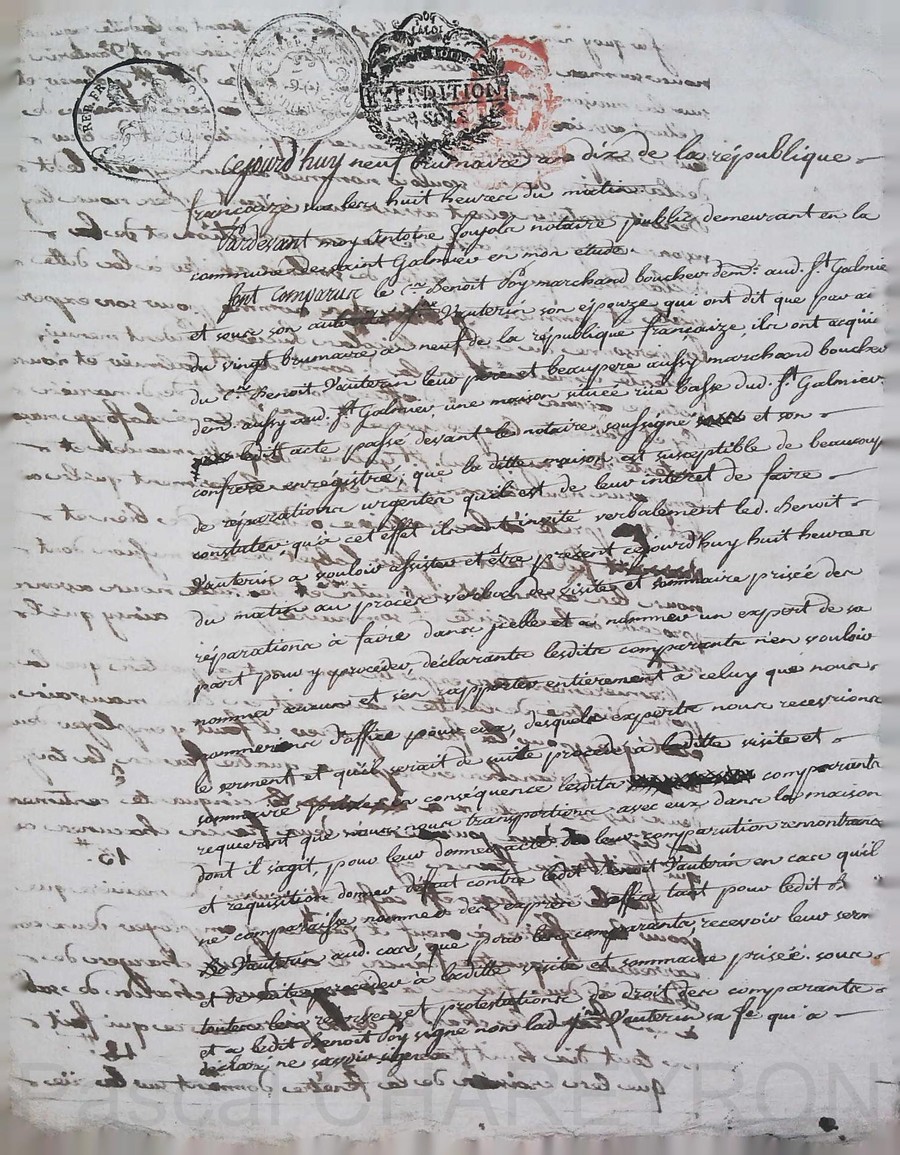 REP. FRA
LA LOI
EXPEDITION
SOLS
cejourd'huy neuf brumaire an dix de la république
françaize sur les huit heures du matin
Pardevant moy Antoine Joujola notaire public demeurant en la
commune de saint Galmier en mon etude
sont comparus le Cen Benoit Poy marchand boucher demt aud. St Galmier
et sous son autorité Vauterin son épouze qui ont dit que par ac
du vingt brumaire an neuf de la république françaize, ils ont acquis
du Cen Benoit Vauterin leur pere et beaupere aussy marchand boucher
demt aussy aud. St Galmier une maison située rue basse dud. St Galmier
ledit acte passé devant le notaire soussigné et son
confrere enregistré, que la ditte maison est susceptible de beaucoup
de réparations urgentes qu'il est de leur intéret de faire
constater qu'à cet effet ils ont invité verbalement led. Benoit
Vauterin a vouloir assister et être présent cejourd'huy huit heures
du matin au procès verbal de visite et sommaire prisée des
réparations à faire dans icelle et a nommer un expert de sa
part pour y proceder, déclarants lesdits comparants n'en vouloir
nommer aucun et s'en rapporter entierement à celuy que nous
nommerions d'office pour eux, desquels experts nous recevrions
le serment et qu'il serait de suite procédé à laditte visite et
sommaire prisée en conséquence lesdits comparants
requerant que nous nous transportions avec eux dans la maison
dont il s'agit, pour leur donner acte de leur comparution remontrance
et requisition donner défaut contre ledit Benoit Vauterin en cas qu'il
ne comparaisse, nommer des experts d'office tant pour ledit B
Vauterin aud. cas, que pour les comparants, recevoir leur serm
et de suite proceder à laditte visite et sommaire prisée. sous
toutes les reserves et protestations de droit des comparants
et a ledit Benoit Poy signé non lad. Vauterin sa fe qui a
déclaré ne savoir signer
Pascal CHAREYRON